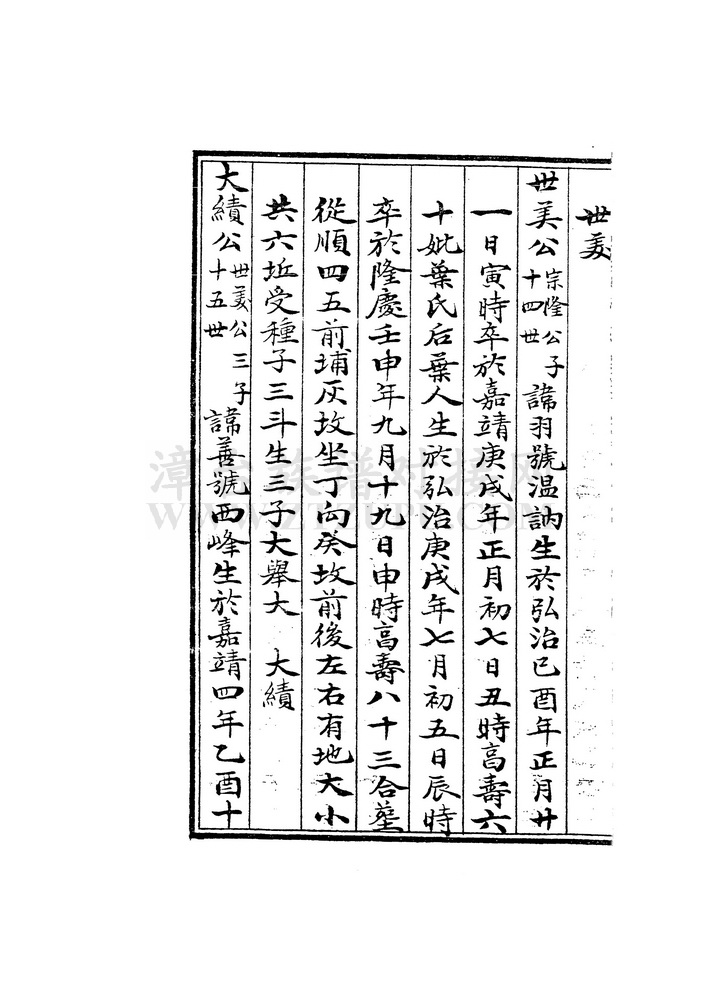 世美
世美公宗隆公子十四世諱羽號温訥生於弘治己酉年正月廿
一日寅時卒於嘉靖庚戌年正月初七日丑時高壽六
十妣葉氏后葉人生於弘治庚戌年七月初五日辰時
卒於隆慶壬申年九月十九日申時高壽八十三合塟
從順四五前埔灰坟坐丁向癸坟前後左右有地大小
共六坵受種子三斗生三子大舉大 大績
大績公世美公三子十五世諱善號西峰生於嘉靖四年乙酉十